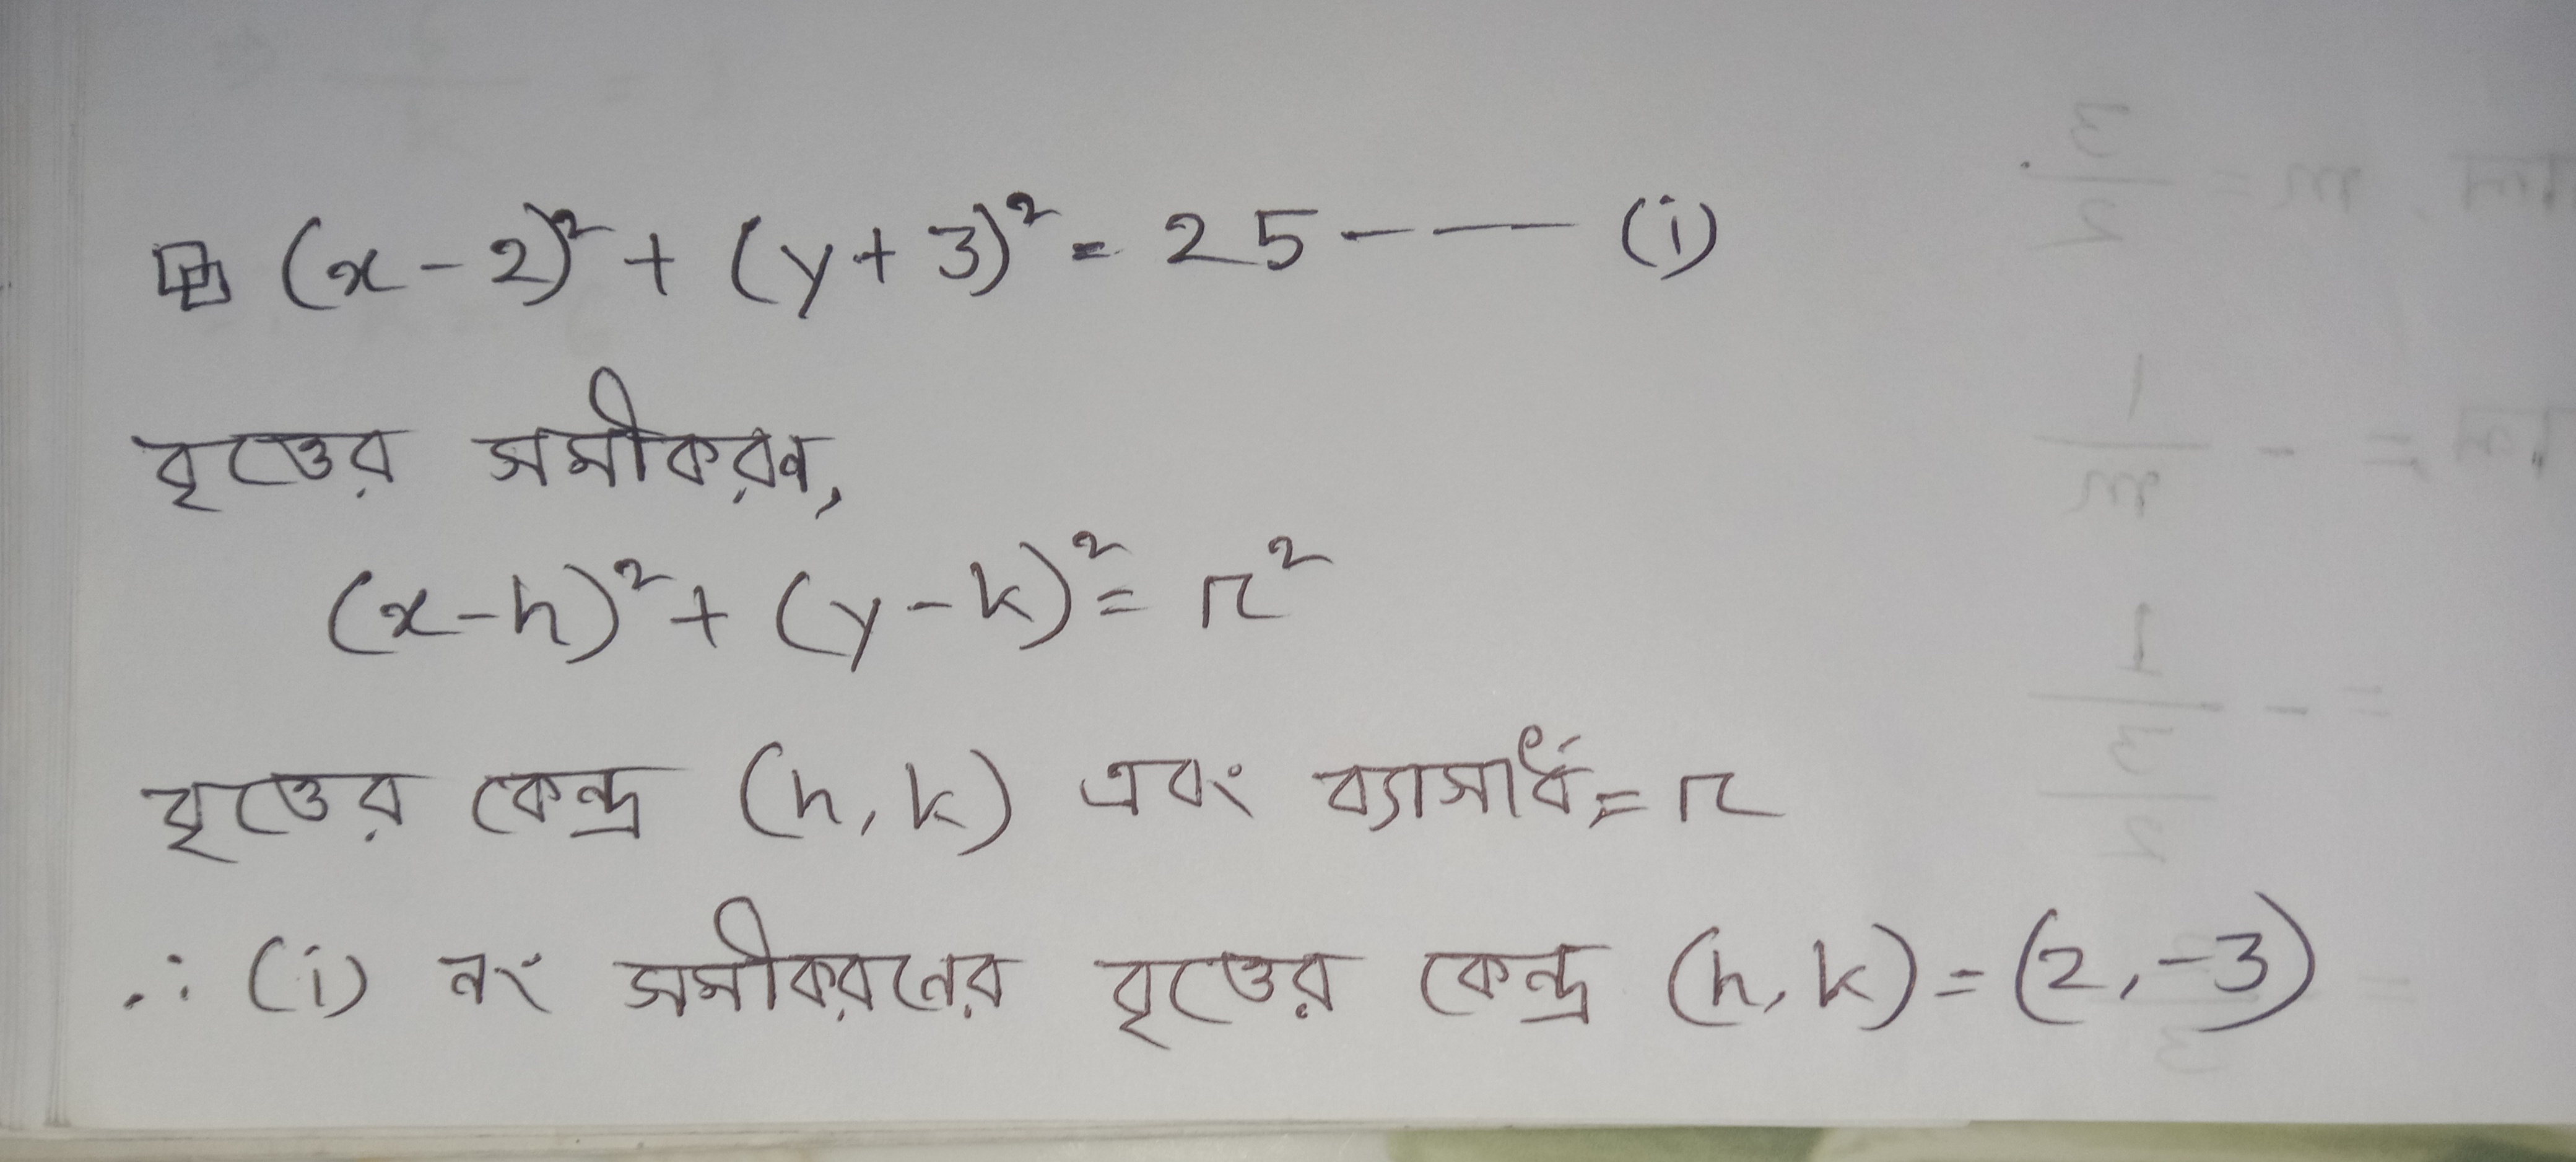 (x-2)² + (y+3)² = 25 -— (i)
বৃত্তের সমীকরন,
(x-h)² + (y-k)² = r²
বৃত্তের কেন্দ্র (h, k) এবং ব্যাসার্ধ = r
∴ (i) নং সমীকরনের বৃত্তের কেন্দ্র (h, k) = (2, -3)